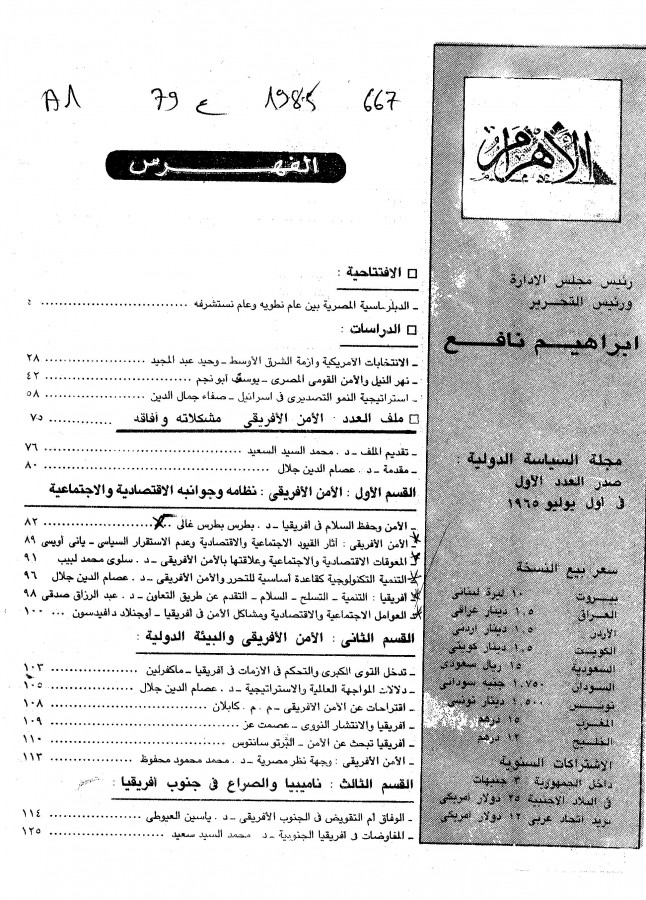 A1 79 ع 1985 667
الفهرس
□ الافتتاحية :
ـ الدبلوماسية المصرية بين عام نطويه وعام نستشرفه ........ ٤
□ الدراسات :
ـ الانتخابات الأمريكية وازمة الشرق الأوسط ـ وحيد عبد المجيد ........ ٢٨
ـ نهر النيل والأمن القومى المصرى ـ يوسف أبو نجم ........ ٤٢
ـ استراتيجية النمو التصديرى فى اسرائيل ـ صفاء جمال الدين ........ ٥٨
□ ملف العدد : الأمن الأفريقى مشكلاته وأفاقه ........ ٧٥
ـ تقديم الملف ـ د . محمد السيد السعيد ........ ٧٦
ـ مقدمة ـ د . عصام الدين جلال ........ ٨٠
القسم الأول : الأمن الأفريقى : نظامه وجوانبه الاقتصادية والاجتماعية
ـ الأمن وحفظ السلام فى أفريقيا ـ د . بطرس بطرس غالى ........ ٨٢
ـ الأمن الأفريقى : أثار القيود الاجتماعية والاقتصادية وعدم الاستقرار السياسى ـ يانى أويسى ٨٩
ـ المعوقات الاقتصادية والاجتماعية وعلاقتها بالأمن الأفريقى ـ د . سلوى محمد لبيب ٩١
ـ التنمية التكنولوجية كقاعدة أساسية للتحرر والأمن الأفريقى ـ د . عصام الدين جلال ٩٦
ـ أفريقيا : التنمية ـ التسلح ـ السلام ـ التقدم عن طريق التعاون ـ د . عبد الرزاق صدقى ٩٨
ـ العوامل الاجتماعية والاقتصادية ومشاكل الأمن فى أفريقيا ـ أوجنلاد دافيدسون ... ١٠٠
القسم الثانى : الأمن الأفريقى والبيئة الدولية :
ـ تدخل القوى الكبرى والتحكم فى الازمات فى افريقيا ـ ماكفرلين ........ ١٠٣
ـ دلالات المواجهة العالمية والاستراتيجية ـ د . عصام الدين جلال ........ ١٠٥
ـ اقتراحات عن الأمن الأفريقى ـ م . م . كابلان ........ ١٠٨
ـ افريقيا والانتشار النووى ـ عصمت عز ........ ١٠٩
ـ أفريقيا تبحث عن الأمن ـ البرتو سانتوس ........ ١١٠
ـ الأمن الأفريقى : وجهة نظر مصرية ـ د . محمد محمود محفوظ ........ ١١٣
القسم الثالث : ناميبيا والصراع فى جنوب أفريقيا :
ـ الوفاق أم التقويض فى الجنوب الأفريقى ـ د . ياسين العيوطى ........ ١١٤
ـ المفاوضات فى افريقيا الجنوبية ـ د . محمد السيد سعيد ........ ١٢٥
الأهرام
رئيس مجلس الادارة
ورئيس التحرير
ابراهيم نافع
مجلة السياسة الدولية :
صدر العدد الأول
فى أول يوليو ١٩٦٥
سعر بيع النسخة
بيروت ١٠ ليرة لبنانى
العراق ١.٥ دينار عراقى
الأردن ١.٥ دينار اردنى
الكويت ١.٥ دينار كويتى
السعودية ١٥ ريال سعودى
السودان ١.٧٥٠ جنيه سودانى
تونس ١.٥٠٠ دينار تونسى
المغرب ١٥ درهم
الخليج ١٢ درهم
الاشتراكات السنوية
داخل الجمهورية : ٣ جنيهات
فى البلاد الاجنبية ٢٥ دولار امريكى
بريد اتحاد عربى ١٢ دولار امريكى